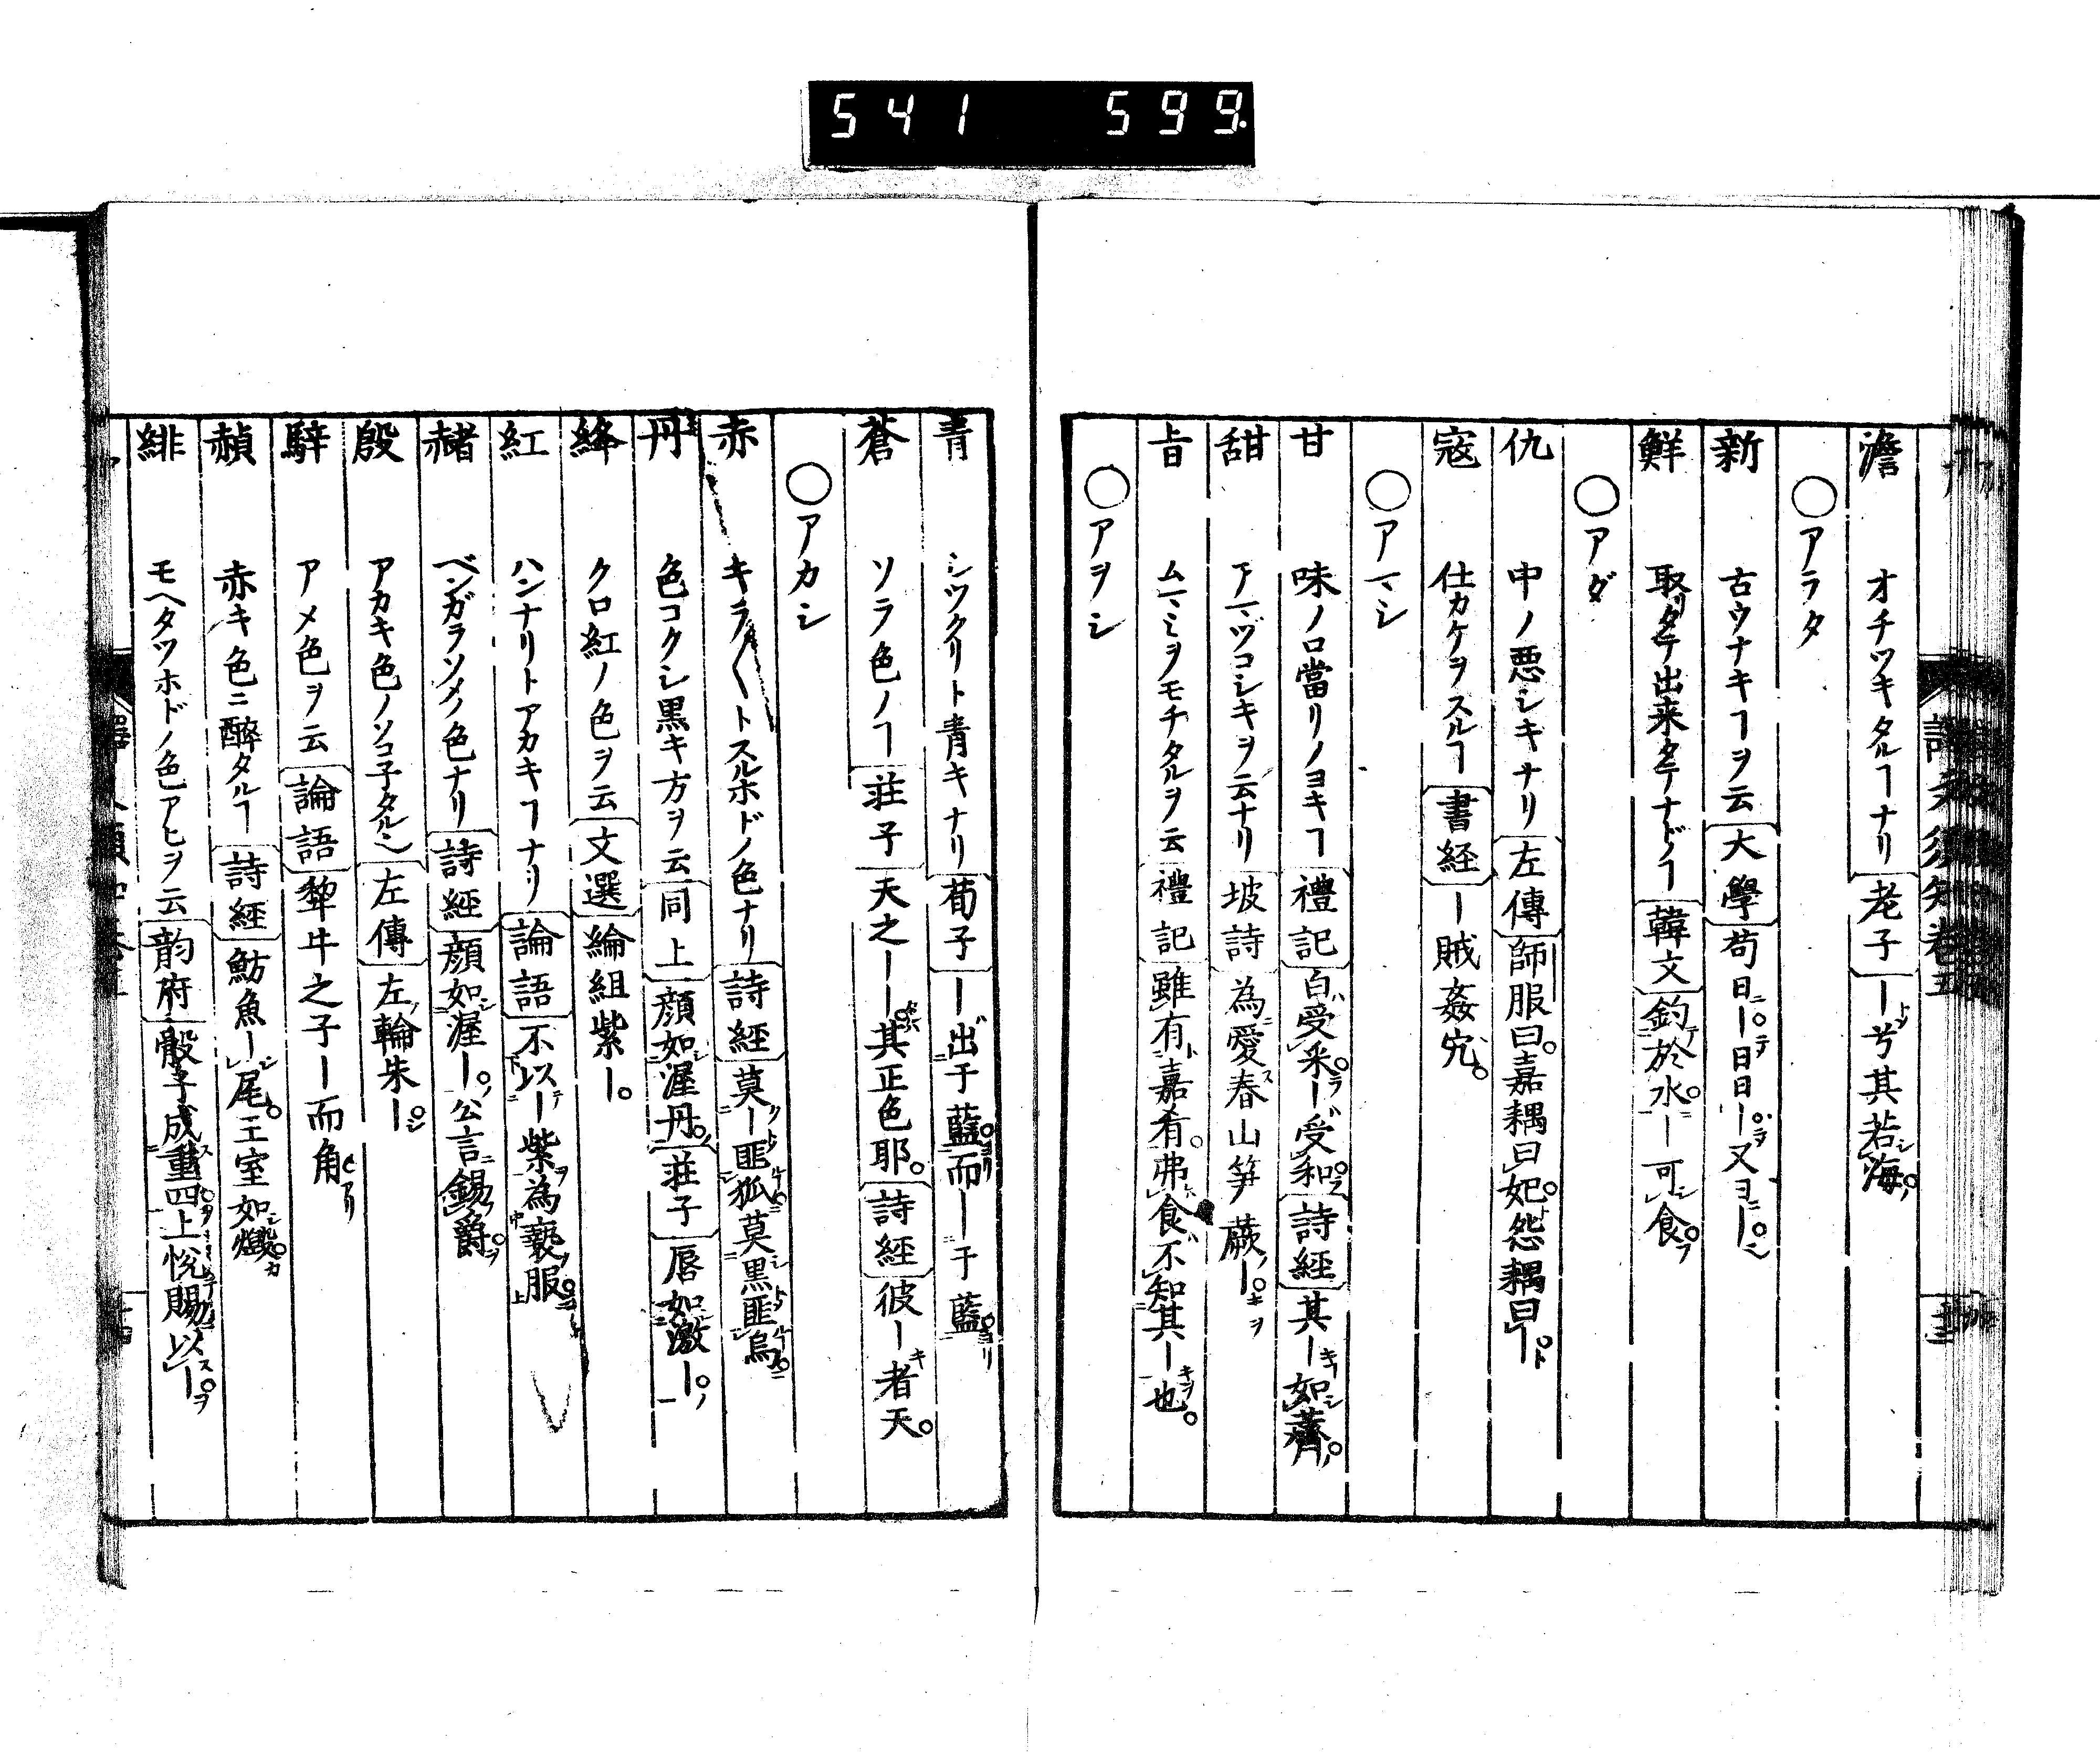 541 599.
澹 オチツキタルヿナリ 老子 ー兮其若海
○アラタ
新 古ウナキヿヲ云 大學 苟日ー日日ー又ー
鮮 取タテ出来タテナドノヿ 韓文 釣於水ー可食
○アダ
仇 中ノ悪シキナリ 左傳 師服曰嘉耦曰妃怨耦曰ー
寇 仕カケヲスルヿ 書経 ー賊姦宄
○アマシ
甘 味ノロ當リノヨキヿ 禮記 白受采ー受和 詩経 其ー如薺
甜 アマヅコシキヲ云ナリ 坡詩 為愛春山笋蕨ー
旨 ムマミヲモチタルヲ云 禮記 雖有嘉肴弗食不知其ー也
○アヲシ
青 シツクリト青キナリ 荀子 ー出于藍而ー于藍
蒼 ソラ色ノヿ 荘子 天之ーー其正色耶 詩経 彼ー者天
○アカシ
赤 キラ〱トスルホドノ色ナリ 詩経 莫ー匪狐莫黒匪烏
丹 色コクシ黒キ方ヲ云 同上 顔如渥丹 荘子 唇如激ー
絳 クロ紅ノ色ヲ云 文選 綸組紫ー
紅 ハンナリトアカキヿナリ 論語 不以ー紫為褻服
赭 ベンガラソメノ色ナリ 詩経 顔如渥ー公言錫爵
殷 アカキ色ノソコ子タル 左傳 左輪朱ー
騂 アメ色ヲ云 論語 犂牛之子ー而角
赬 赤キ色ニ酔タルヿ 詩経 魴魚ー尾王室如燬
緋 モヘタツホドノ色アヒヲ云 韵府 骰子成重四上悅賜以ー